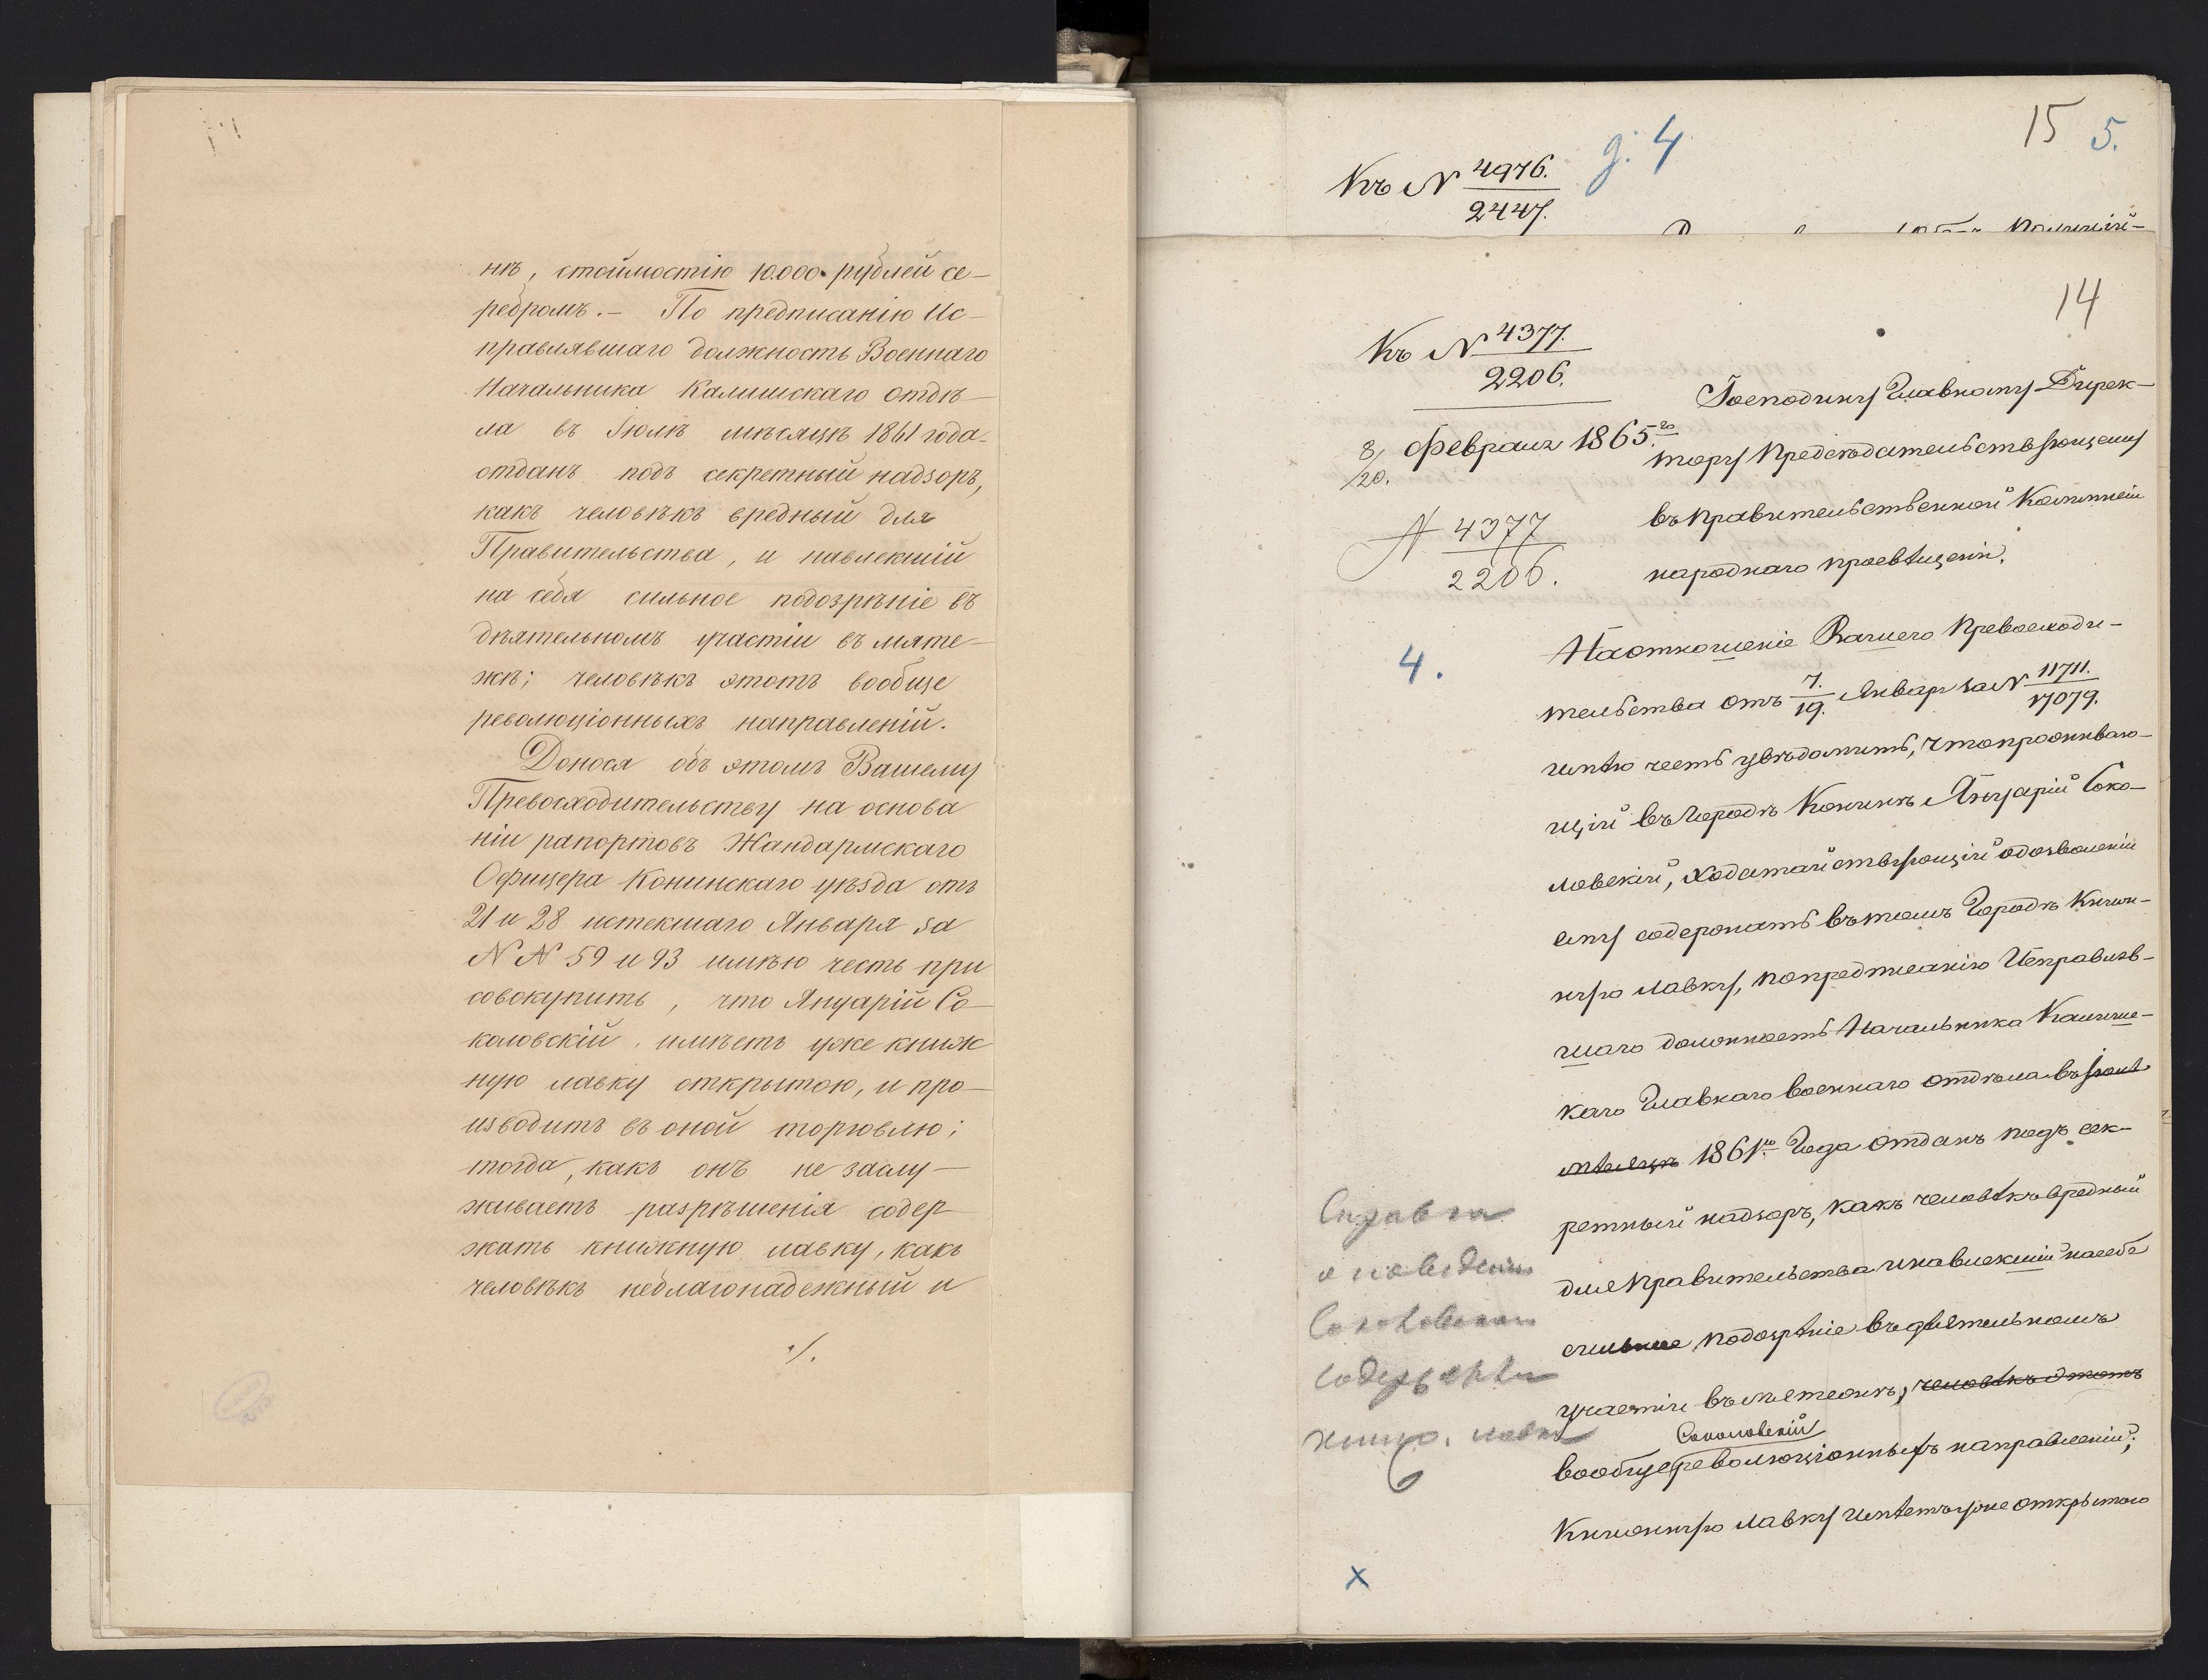 нѣ, стоймостію 10.000 рублей се-
ребромъ. – По предписанію Ис-
правлявшаго должность Военнаго
Начальника Калишскаго отдѣ-
ла въ Іюлѣ мѣсяцѣ 1861 года
отданъ подъ секретный надзоръ,
какъ человѣкъ вредный для
Правительства, и навлекшій
на себя сильное подозрѣніе въ
дѣятельномъ участіи въ мяте-
жѣ; человѣкъ этотъ вообще
революціонныхъ направленій.
Донося объ этомъ Вашему
Превосходительству на основа
ніи рапортовъ Жандармскаго
Офицера Конинскаго уѣзда отъ
21 и 28 истекшаго Января за
N N 59 и 93 имѣю честь при
совокупить, что Януарій Со-
коловскій, имѣетъ уже книж
ную лавку открытою, и про-
изводитъ въ оной торговлю;
тогда, какъ онъ не заслу-
живаетъ разрѣшенія содер
жать книжную лавку, какъ
человѣкъ неблагонадежный и
./.
15 5.
Къ N 4976. д. 4
2447.
Полицій-
14
Къ N 4377.
2206.
8/20. Февраля 1865го
N 4377
2206.
Господину Главному Дирек-
тору Предсѣдательствующему
въ Правительственной Коммисіи
народнаго просвѣщенія.
4.
На отношеніе Вашего Превосходи-
тельства отъ 7./19. Января за N 11711./17079.
имѣю честь увѣдомить, что проживаю-
щій въ Городѣ Конинѣ Януарій Соко-
ловскій, ходатайствующій о дозволеніи
ему содержать въ томъ Городѣ Книж-
ную лавку, по предписанію Исправляв-
шаго должность Начальника Калишс-
каго Главнаго военнаго отдѣла въ Іюлѣ
мѣсяцѣ 1861го Года отданъ подъ сек-
ретный надзоръ, какъ человѣкъ вредный
для Правительства и навлекшій на себя
сильное подозрѣніе въ дѣятельномъ
участіи въ мятежѣ, человѣкъ этотъ
Соколовскій
вообще революціонныхъ направленій;
Книжную лавку имѣетъ уже открытою
Справка
о поведеніи
Соколовскаго
содержателя
книж. лавки
x